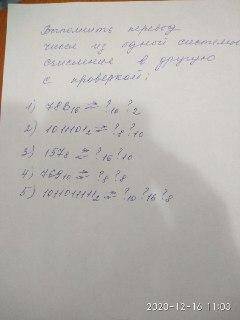 Выполнить перевод
чисел из одной системы
счисления в другую
с проверкой:
1) 78B₁₆ ⇄ ?₁₀ ?₂
2) 1011101₂ ⇄ ?₈ ?₁₀
3) 157₈ ⇄ ?₁₆ ?₁₀
4) 769₁₀ ⇄ ?₈ ?₈
5) 1011011111₂ ⇄ ?₁₀ ?₁₆ ?₈
2020-12-16 11:03